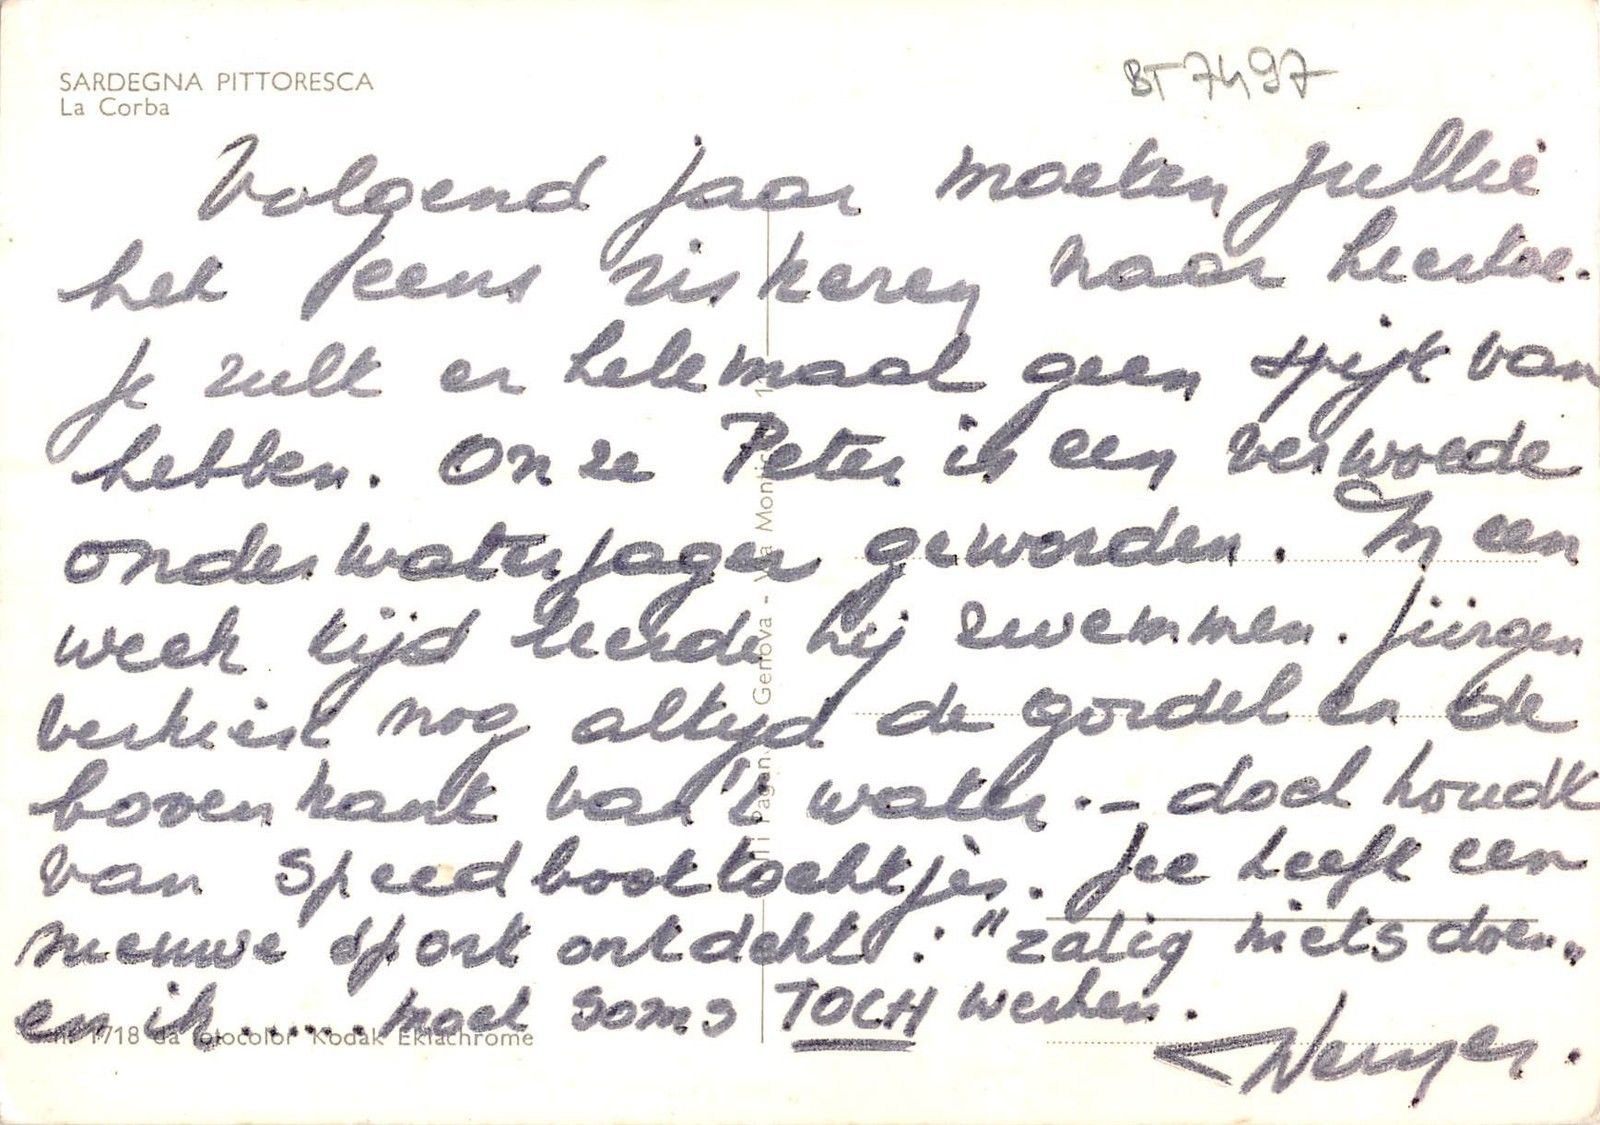 SARDEGNA PITTORESCA
La Corba
BT 7497
Volgend jaar moeten jullie
het eens riskeren naar hiertoe.
Je zult er helemaal geen spijt van
hebben. Onze Peter is een verwoede
onderwaterjager geworden. In een
week tijd leerde hij zwemmen. Jürgen
verkiest nog altijd de gordel en de
bovenkant van 't water. - doch houdt
van speedboottochtjes. Jee heeft een
nieuwe sport ontdekt: "zalig niets doen"
en ik ..... moet soms TOCH werken.
1718 da fotocolor Kodak Ektachrome
Genova - Via